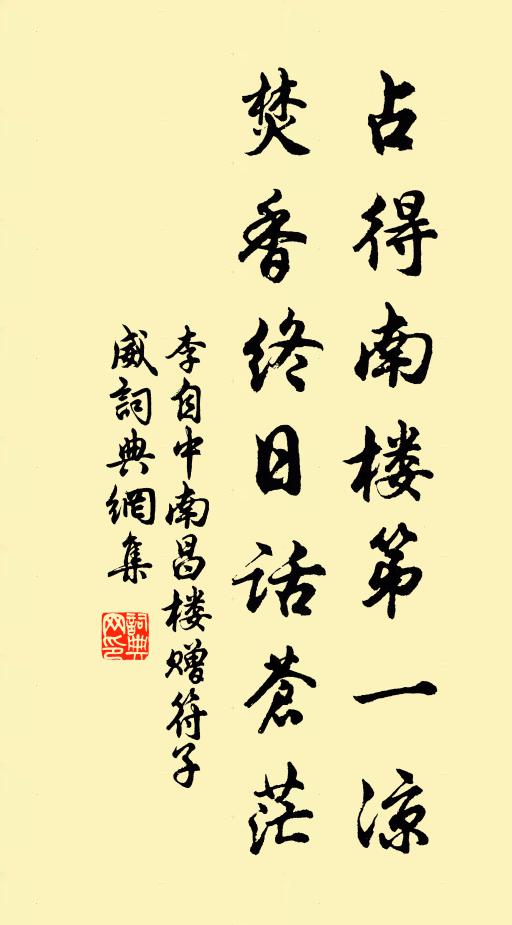 占得南楼第一凉
焚香终日话苍茫
李自中南昌楼赠符子
威词典網集
詞典
网印